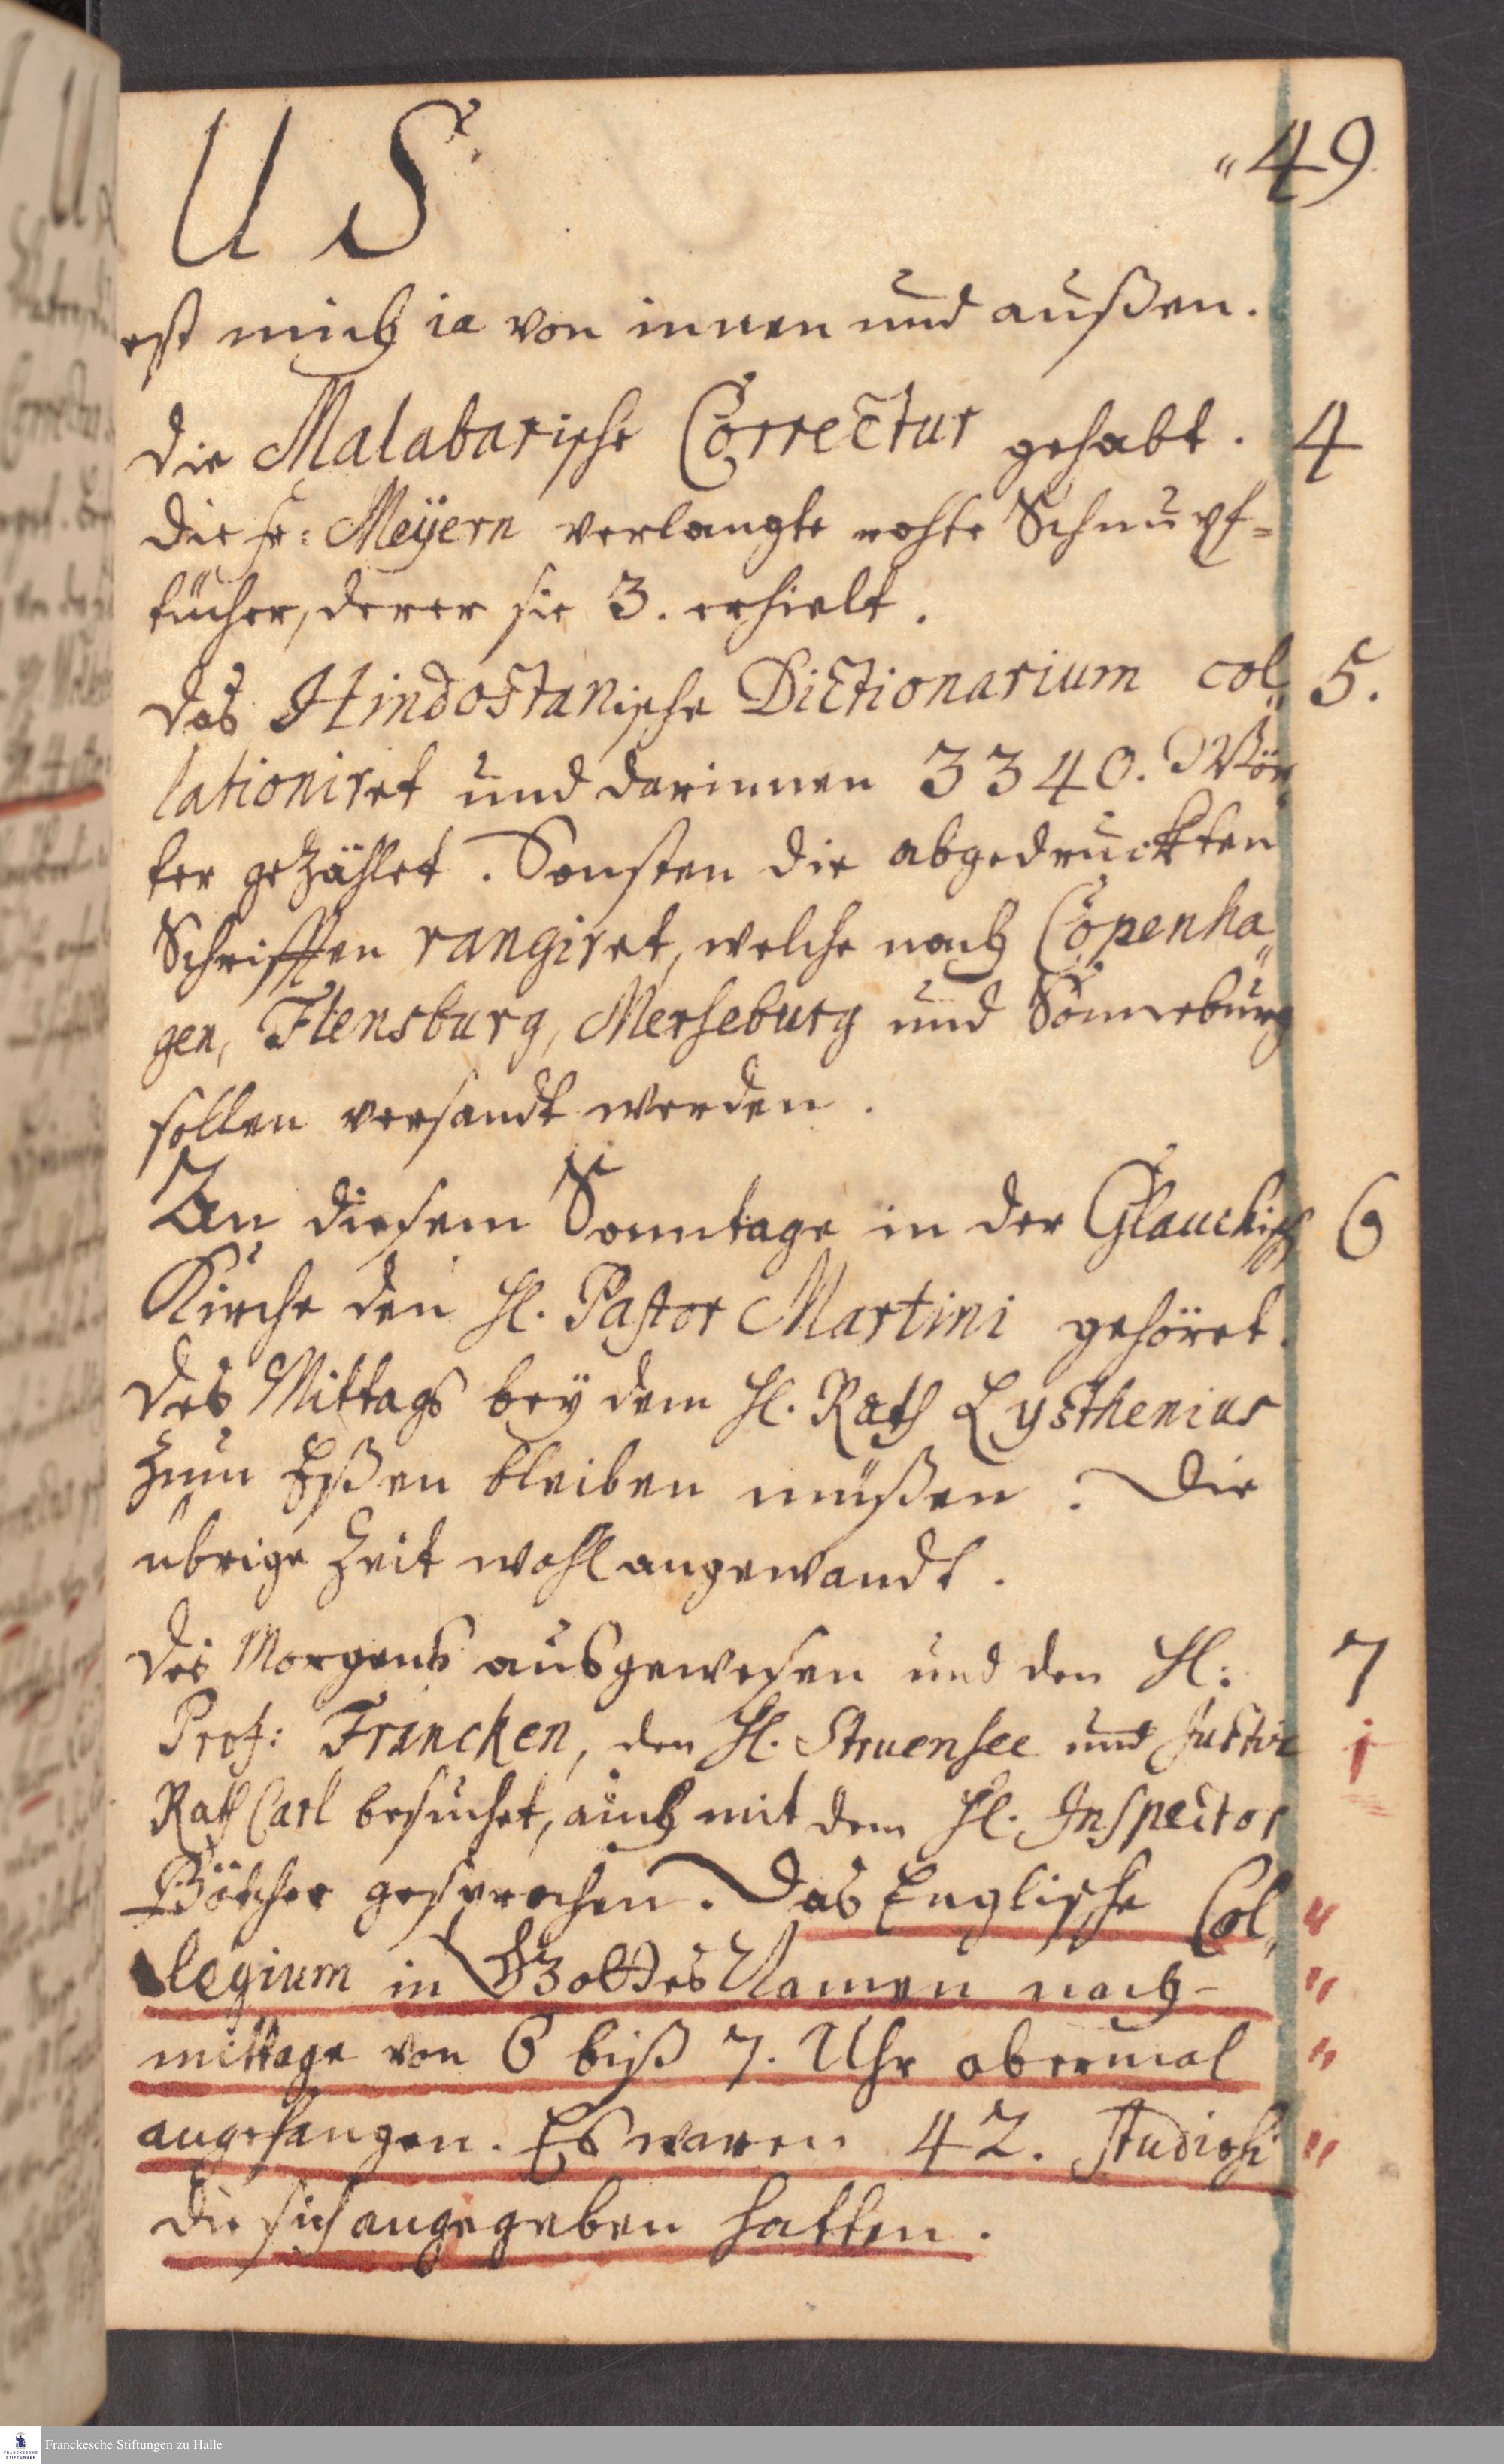 U S.
„ 49.
est mich ia von innen und außen.
die Malabarische Correctur gehabt. 4
die fr: Meÿern verlangte rohte Schnupf=
tücher, derer sie 3. erhielt.
das Hindostanische Dictionarium col„ 5.
lationiret und darinnen 3340. Wör„
ter gezählet. Sonsten die abgedruckten
Schrifften rangiret, welche nach Copenha„
gen, Flensburg, Merseburg und Sonneburg
sollen versandt werden.
An diesem Sonntage in der Glauchisch 6
Kirche den H. Pastor Martini gehöret.
des Mittags beÿ dem H. Rath Lysthenius
zum Eßen bleiben müßen. Die
übrige Zeit wohl angewandt.
des Morgens ausgewesen und den H: 7
Prof: Francken, den H. Struensee und Justic
Rath Carl besuchet, auch mit dem H. Inspector
Bötcher gesprochen. Das Englische Col„ "
legium in Gottes Namen nach- "
mittage von 6 biß 7. Uhr abermal "
angefangen. Es waren 42. Studiosi "
die sich angegeben hatten.
Franckesche Stiftungen zu Halle